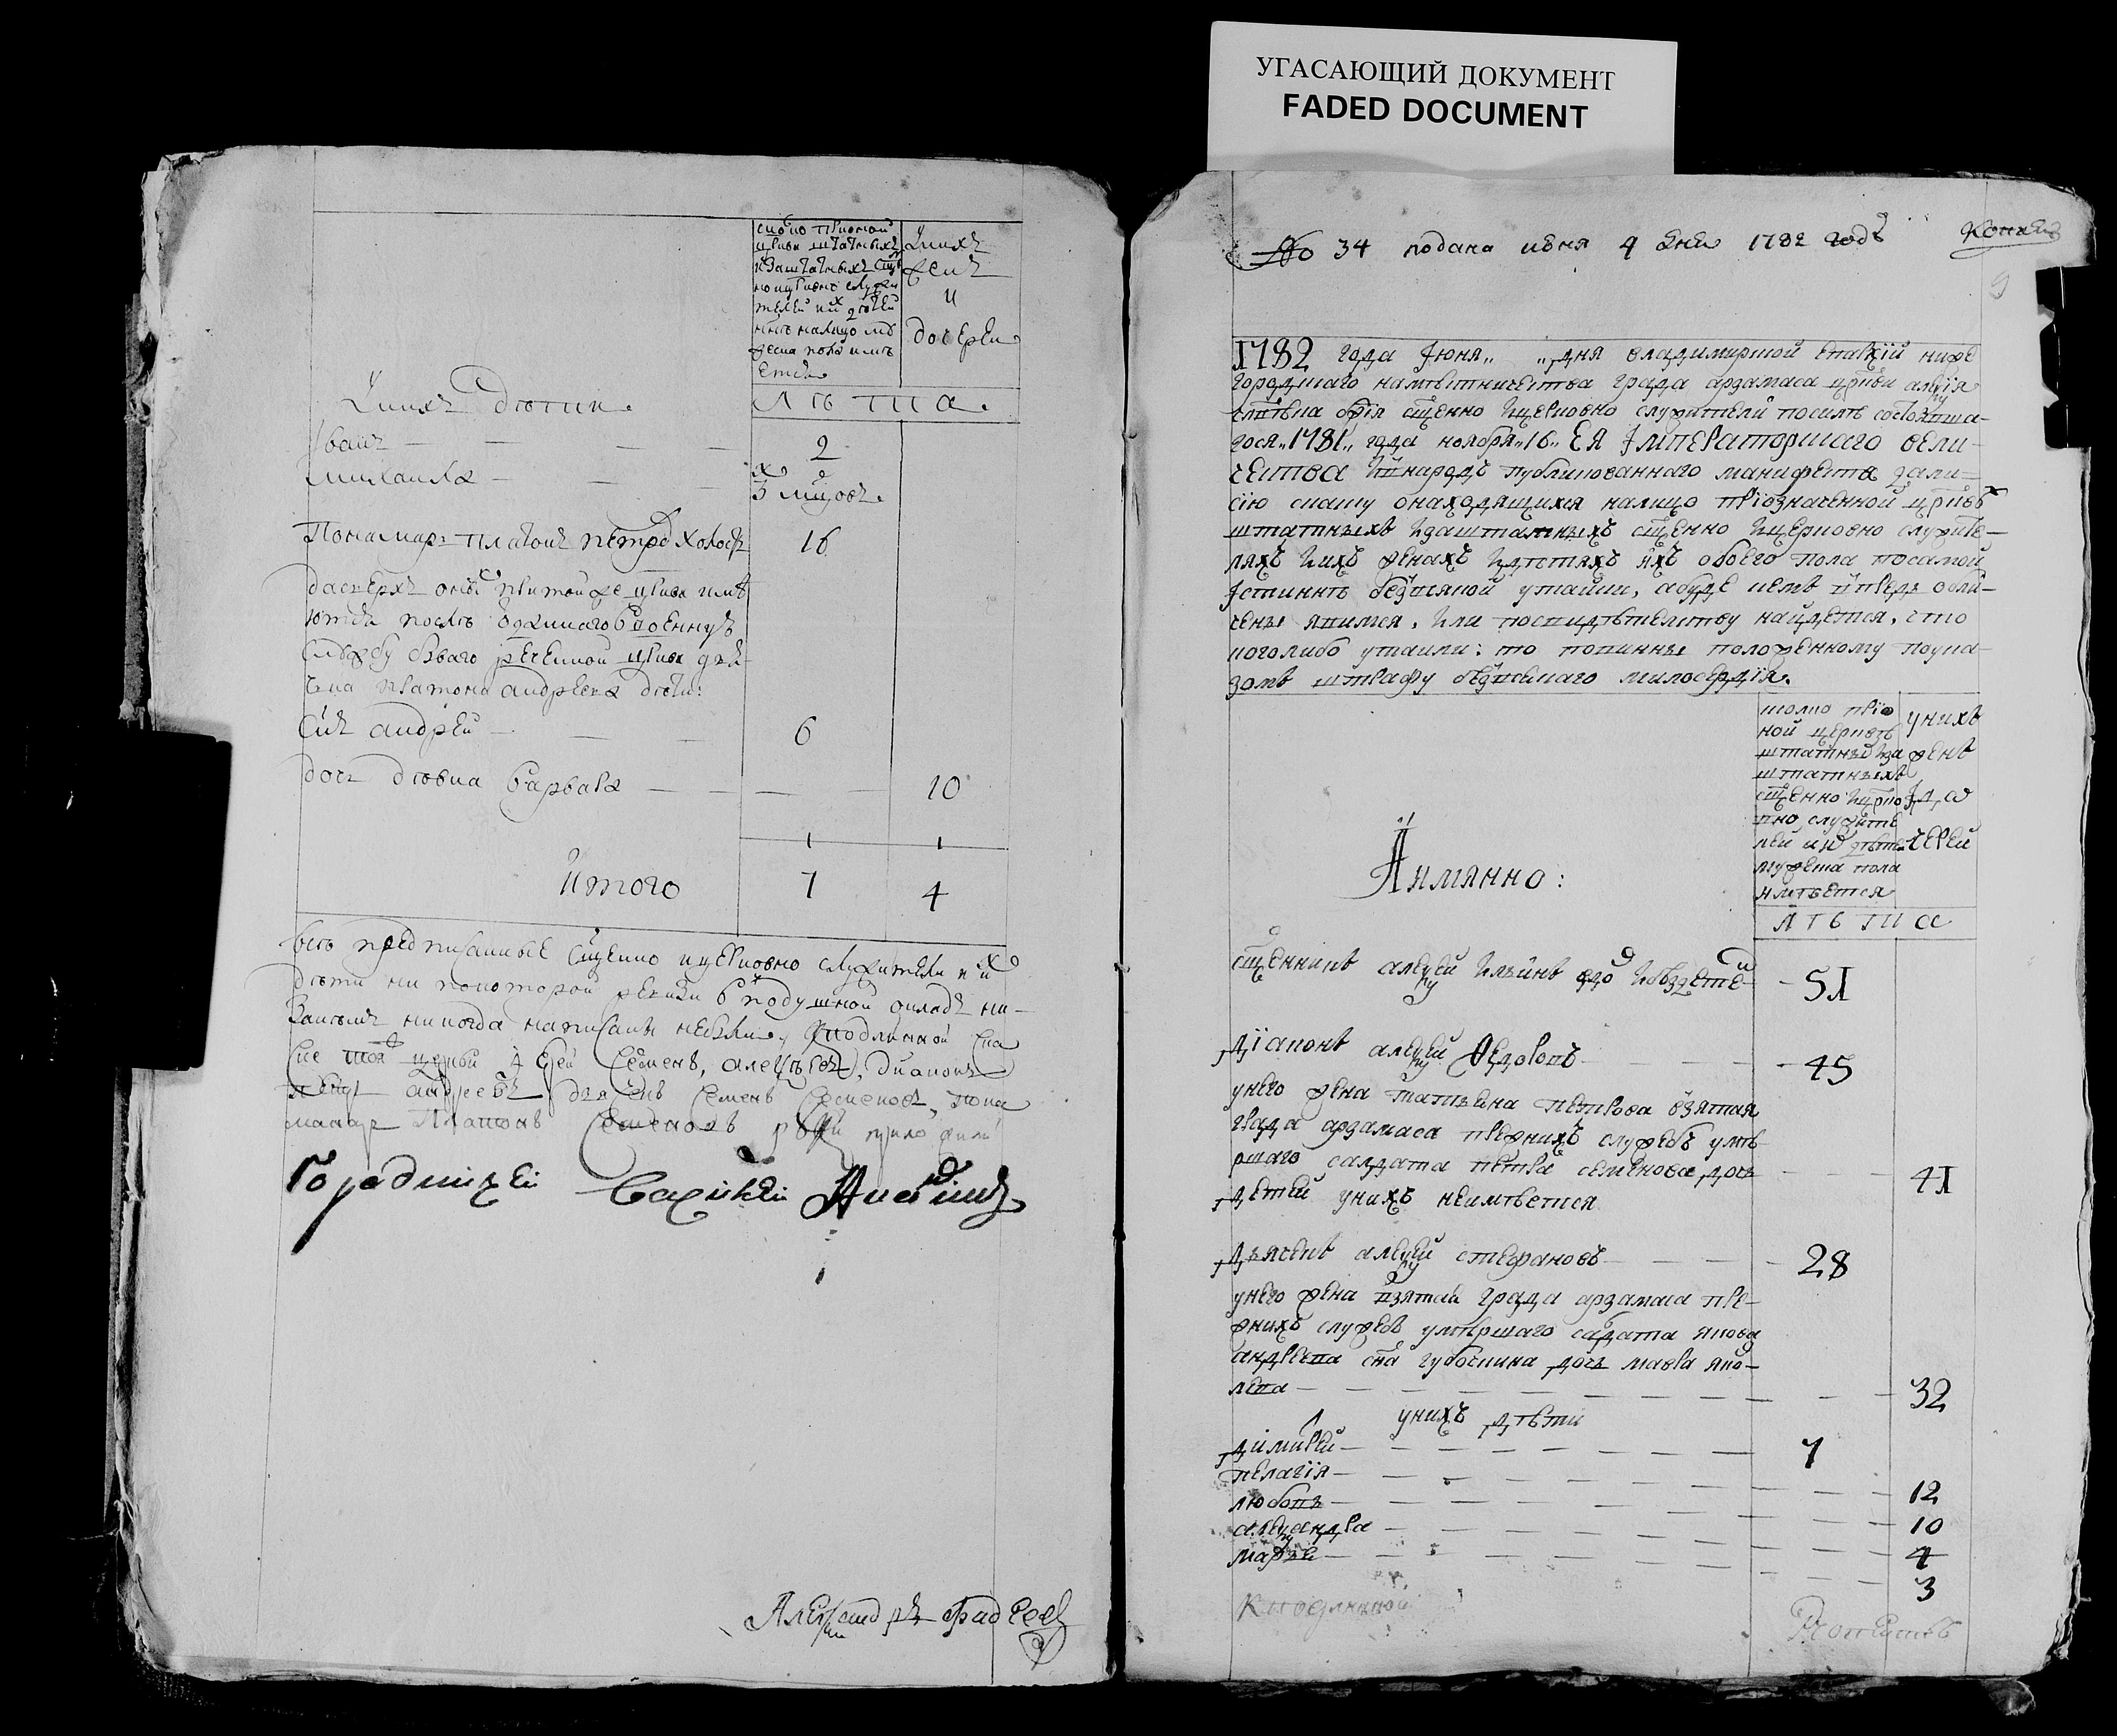 УГАСАЮЩИЙ ДОКУМЕНТ
FADED DOCUMENT
сколко при оной
церкви штатныхъ
и заштатныхъ
но церковно служи
телей и ихъ детей
ныне налицо му
жеска пола имѣ
етца
У нихъ
женъ
и
дочерей
У нихъ дѣти
Лѣта
Иванъ 2
Михаила 3 мцовъ
Пономарь Платонъ Петровъ холостъ 16
да сверхъ оныхъ при той же церкви имѣ
ютца послѣ отданнаго в военную
службу бывшаго реченной церкви дья-
чка Платона Андреева дѣти:
Снъ андрей 6
дочь дѣвка варвара 10
Итого 7 4
Всѣ предписанные сщенно и церковно служители и их
дѣти ни по которой ревизи в подушной окладъ ни
за кѣмъ никогда написаны небыли, у подлинной ска
ске той церкви Иерей Семенъ Алексѣевъ, дияконъ
Петръ андреевъ дьячекъ Семенъ Семеновъ, поно
марь Платонъ Семеновъ руки приложили
Городничей Василей
Александръ Фадеев
№ 34 подана июня 4 дня 1782 году
Копия
9
1782 года Июня „ „ дня владимирской епархiи ниже
городскаго намѣстничества града арзамаса цркви алеѯiя
члвѣка бжiя сщенно и церковно служители посилѣ состоявша-
гося „1781„ года ноября „16„ ЕЯ Императорскаго вели-
чества внародъ публикованнаго манифеста дали
сiю скаску онаходящихся налицо приозначенной цркви
штатныхъ и заштатныхъ сщенно и церковно служите-
ляхъ и ихъ женахъ и дѣтяхъ ихъ обоего пола посамой
истиннѣ безвсякой утайки, абуде чемъ впредь обли-
чены явимся, или посвидѣтелству найдется, что
коголибо утаили: то повинны положенному поука-
зомъ штрафу безвсякаго милосердiя.
сколко при о
ной церквѣ
штатныхъ и за
штатныхъ
сщенно и црко
вно служите
лей и ихъ дѣтей
мужеска пола
имѣется
унихъ
женъ
и до
черей
Аимянно:
лѣта
сщенникъ алеѯѣй Ильинъ вдовъ и бездетенъ 51
дiаконъ алеѯѣй Ѳедоровъ 45
унего жена татьяна петрова взятая
града арзамаса прежнихъ службъ умѣ-
ршаго салдата петра семенова дочь 41
детей унихъ неимѣется
дьячекъ алеѯѣй стефановъ 28
унего жена взятая града арзамаса пре-
жнихъ службъ умершаго салдата якова
андреева сна губочкина дочь мавра яко-
влева 32
унихъ дѣти
димитрей 7
пелагiя 12
любовь 10
алеѯандра 4
марья 3
К подлинной